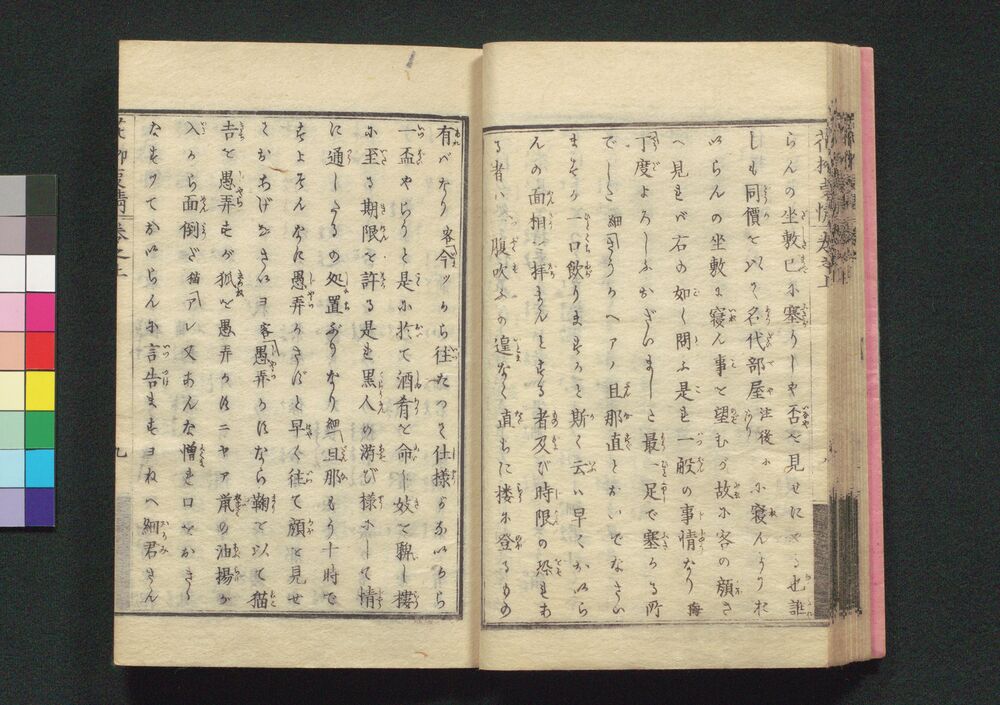 らんの坐敷已に塞りしや否を見せにやる也誰
しも同價をいて名代部屋に寝んより花
いらんの坐敷に寝ん事を望むが故に客の顔さ
へ見れバ右の如く問ふ是れ一般の事情なり
丁度よろしふございましと最一足で塞る所
でしと細きうへアノ旦那直とおいでなさい
ますか一口飲りますかと斯く云い早くおいら
んの面相を拝まんとする者及び時限の
る者ハ腹吹ふの遑なく直ちに楼に登るもの
有べなり客今から往たつて仕様がないから
一盃やらうと是に於て酒肴を命し妓を聘し摟
に至る期限を許る是れ黒人の游び様にして情
に通しるの処置なりなり細旦那もう十時で
すよそんなに愚弄らさずと早く往て顔を見せ
ておあげなさいヨ客愚弄るはなら鞠を以て猫
吉を愚弄すが狐を愚弄るはニヤア鼠の油揚が
入から面倒だ猫アレ又あんな憎れ口をきく
なすつておいらんに言告ますヨねへ細君さん
花柳事情 巻之上
九